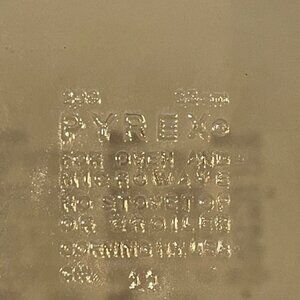 PYREX®
FOR OVEN AND
MICROWAVE
NO STOVETOP
OR BROILER
CORNING, N.Y. USA
11